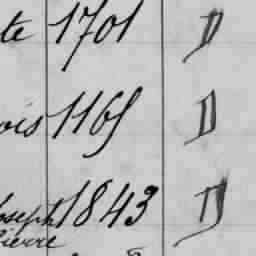 te 1701 D
ois 1165 D
Joseph 1843 D
Pierre